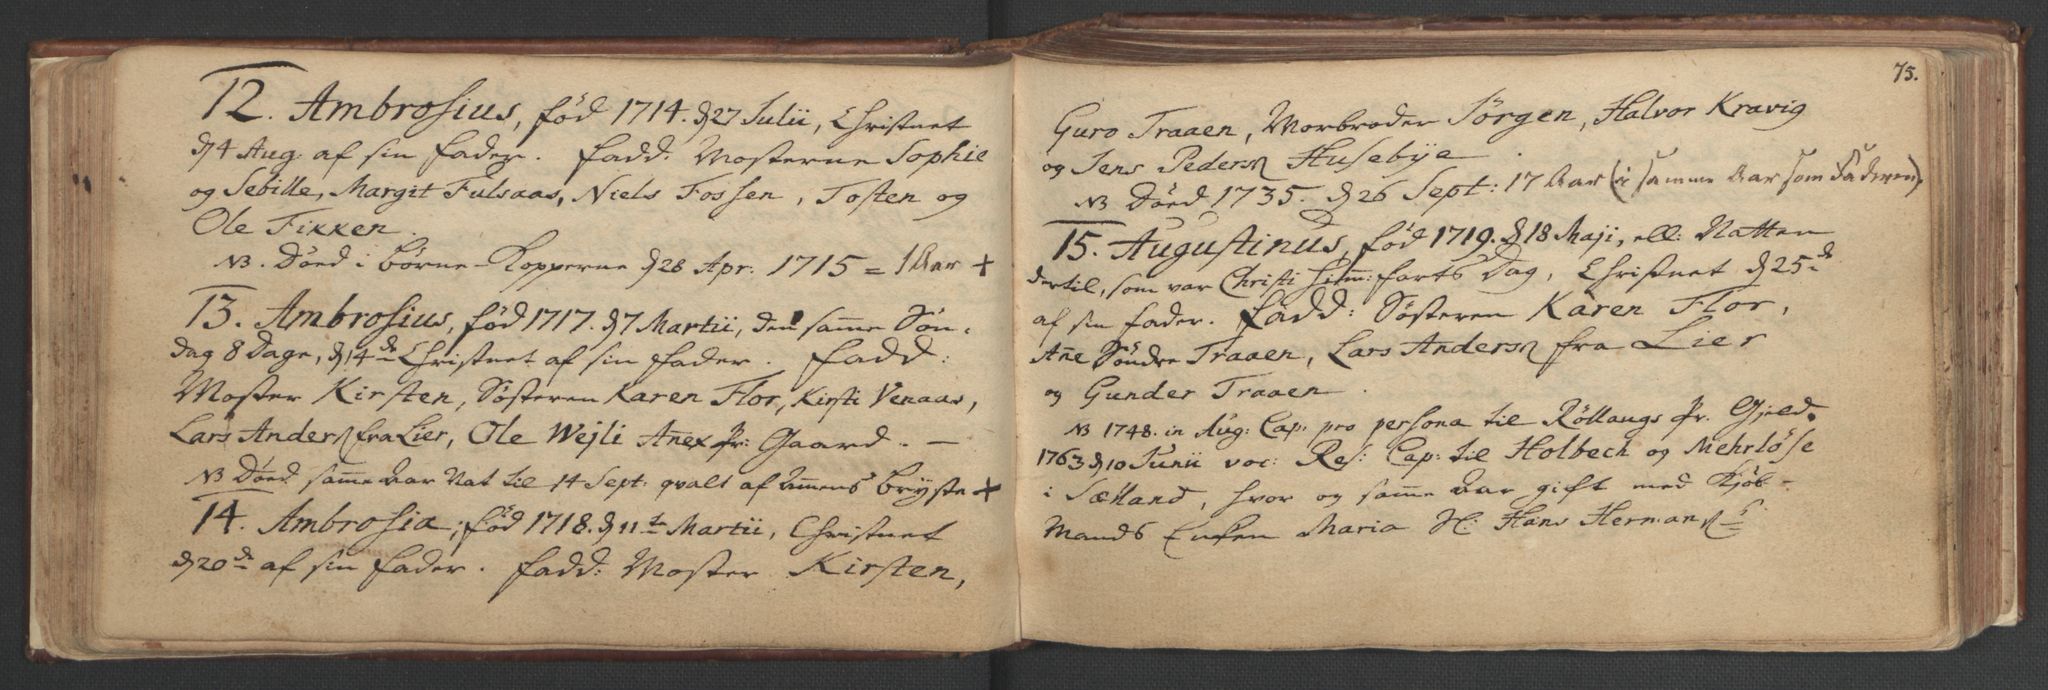 12. Ambrosius, fød 1714. d 27 Julii, Christnet
d 4 Aug. af sin Fader. Fadd: Mosterne Sophie
og Sebille, Margit Fulsaas, Niels Fossen, Tosten og
Ole Fikken.
NB. Døed i Børne-Kopperne d 28 Apr. 1715 = 1 Aar +
13. Ambrosius, fød 1717. d 7 Martii, den samme Søn-
dag 8 Dage, d 14de Christnet af sin Fader. Fadd:
Moster Kirsten, Søsteren Karen Flor, Kirsti Venaas,
Lars Anders fra Lier, Ole Wejli Añex Pr: Gaard. —
NB Døed samme Aar Nat til 14 Sept: qvalt af Ammens Bryste +
14. Ambrosia, fød 1718. d 11te Martii, Christnet
d 20de af sin Fader. Fadd: Moster Kirsten,
75.
Guro Traaen, Morbroder Jørgen, Halvor Kravig
og Jens Peders Husebye.
NB Døed 1735. d 26 Sept: 17 Aar (i samme Aar som Faderen).
15. Augustinus, fød 1719. d 18 Maji, ell: Natten
dertil, som var Christi Himm:farts Dag, Christnet d 25de
af sin Fader. Fadd: Søsteren Karen Flor,
Añe Søndre Traaen, Lars Anders fra Lier
og Gunder Traaen.
NB 1748. in Aug: Cap: pro persona til Rollaugs Pr. Gield.
1763 d 10 Junii voc: Res: Cap: til Holbech og Mehrløse
i Sælland, hvor og samme Aar gift med Kjøb-
mands Enken Maria Sl: Hans Hermans